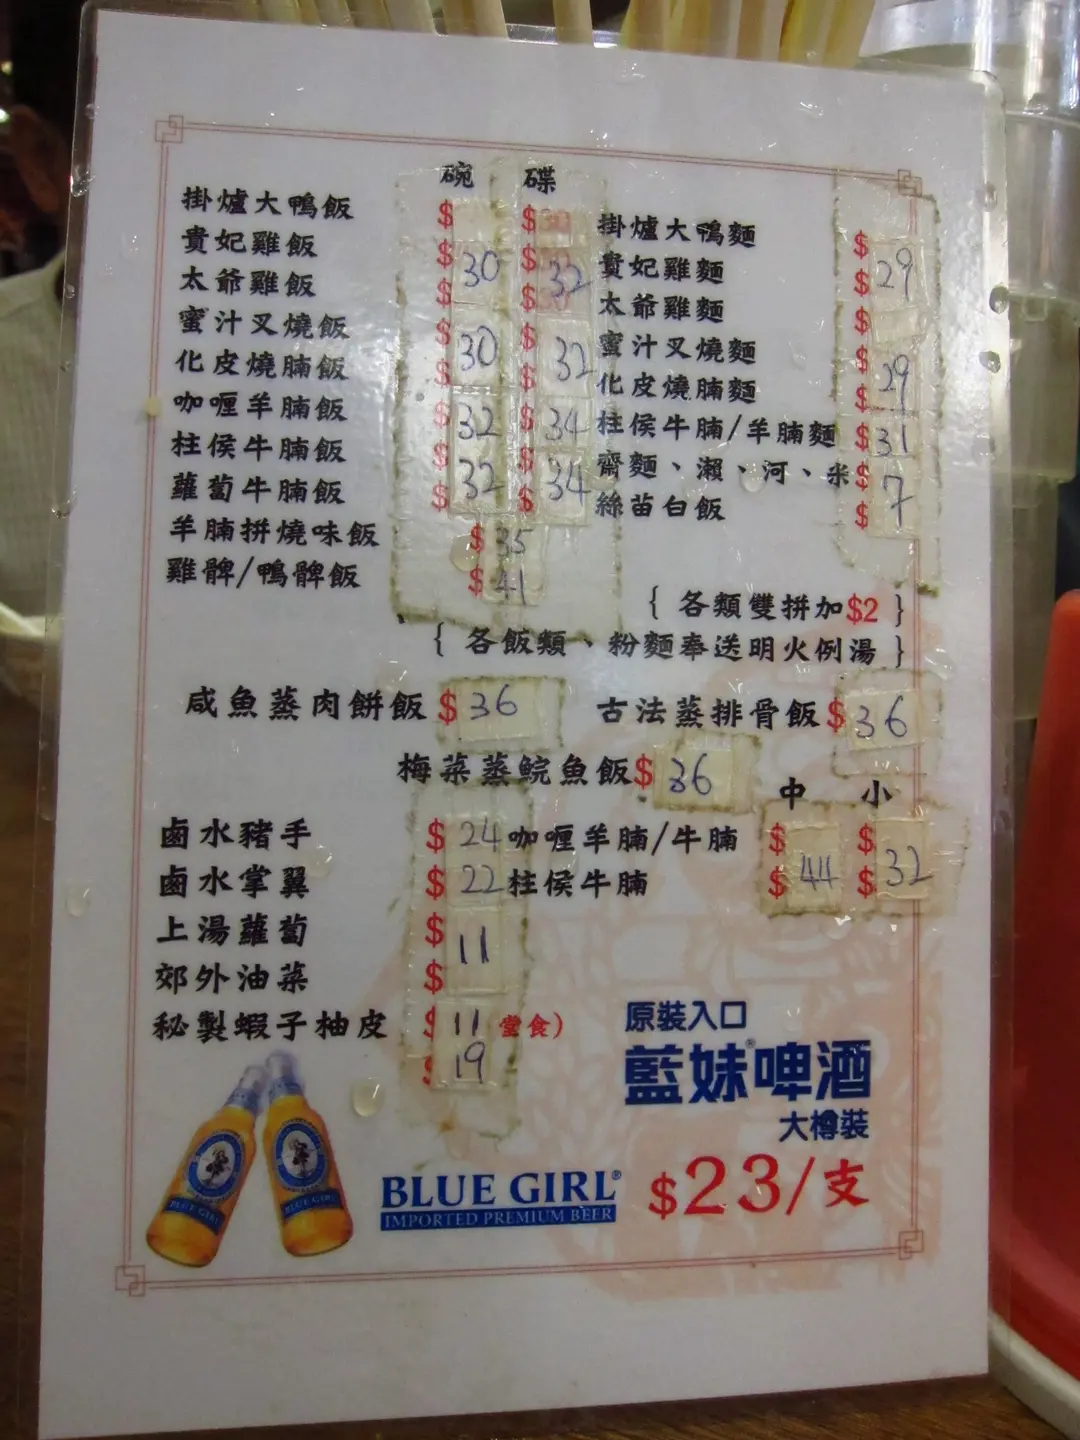 碗 碟
掛爐大鴨飯 $ $
貴妃雞飯 $ 30 $ 32
太爺雞飯 $ $
蜜汁叉燒飯 $ 30 $ 32
化皮燒腩飯 $ $
咖喱羊腩飯 $ 32 $ 34
柱侯牛腩飯 $ $
蘿蔔牛腩飯 $ 32 $ 34
羊腩拼燒味飯 $ 35
雞髀/鴨髀飯 $ 41
掛爐大鴨麵 $
貴妃雞麵 $ 29
太爺雞麵 $
蜜汁叉燒麵 $
化皮燒腩麵 $ 29
柱侯牛腩/羊腩麵 $ 31
齋麵、瀨、河、米 $ 7
絲苗白飯 $
{ 各類雙拼加$2 }
{ 各飯類、粉麵奉送明火例湯 }
咸魚蒸肉餅飯 $ 36
古法蒸排骨飯 $ 36
梅菜蒸鯇魚飯 $ 36
中 小
鹵水豬手 $ 24
鹵水掌翼 $ 22
上湯蘿蔔 $ 11
郊外油菜 $
秘製蝦子柚皮 $ 11 堂食)
19
咖喱羊腩/牛腩 $ $
柱侯牛腩 $ 44 $ 32
原裝入口
藍妹®啤酒
大樽裝
BLUE GIRL®
IMPORTED PREMIUM BEER
$23/支
BLUE GIRL
BLUE GIRL